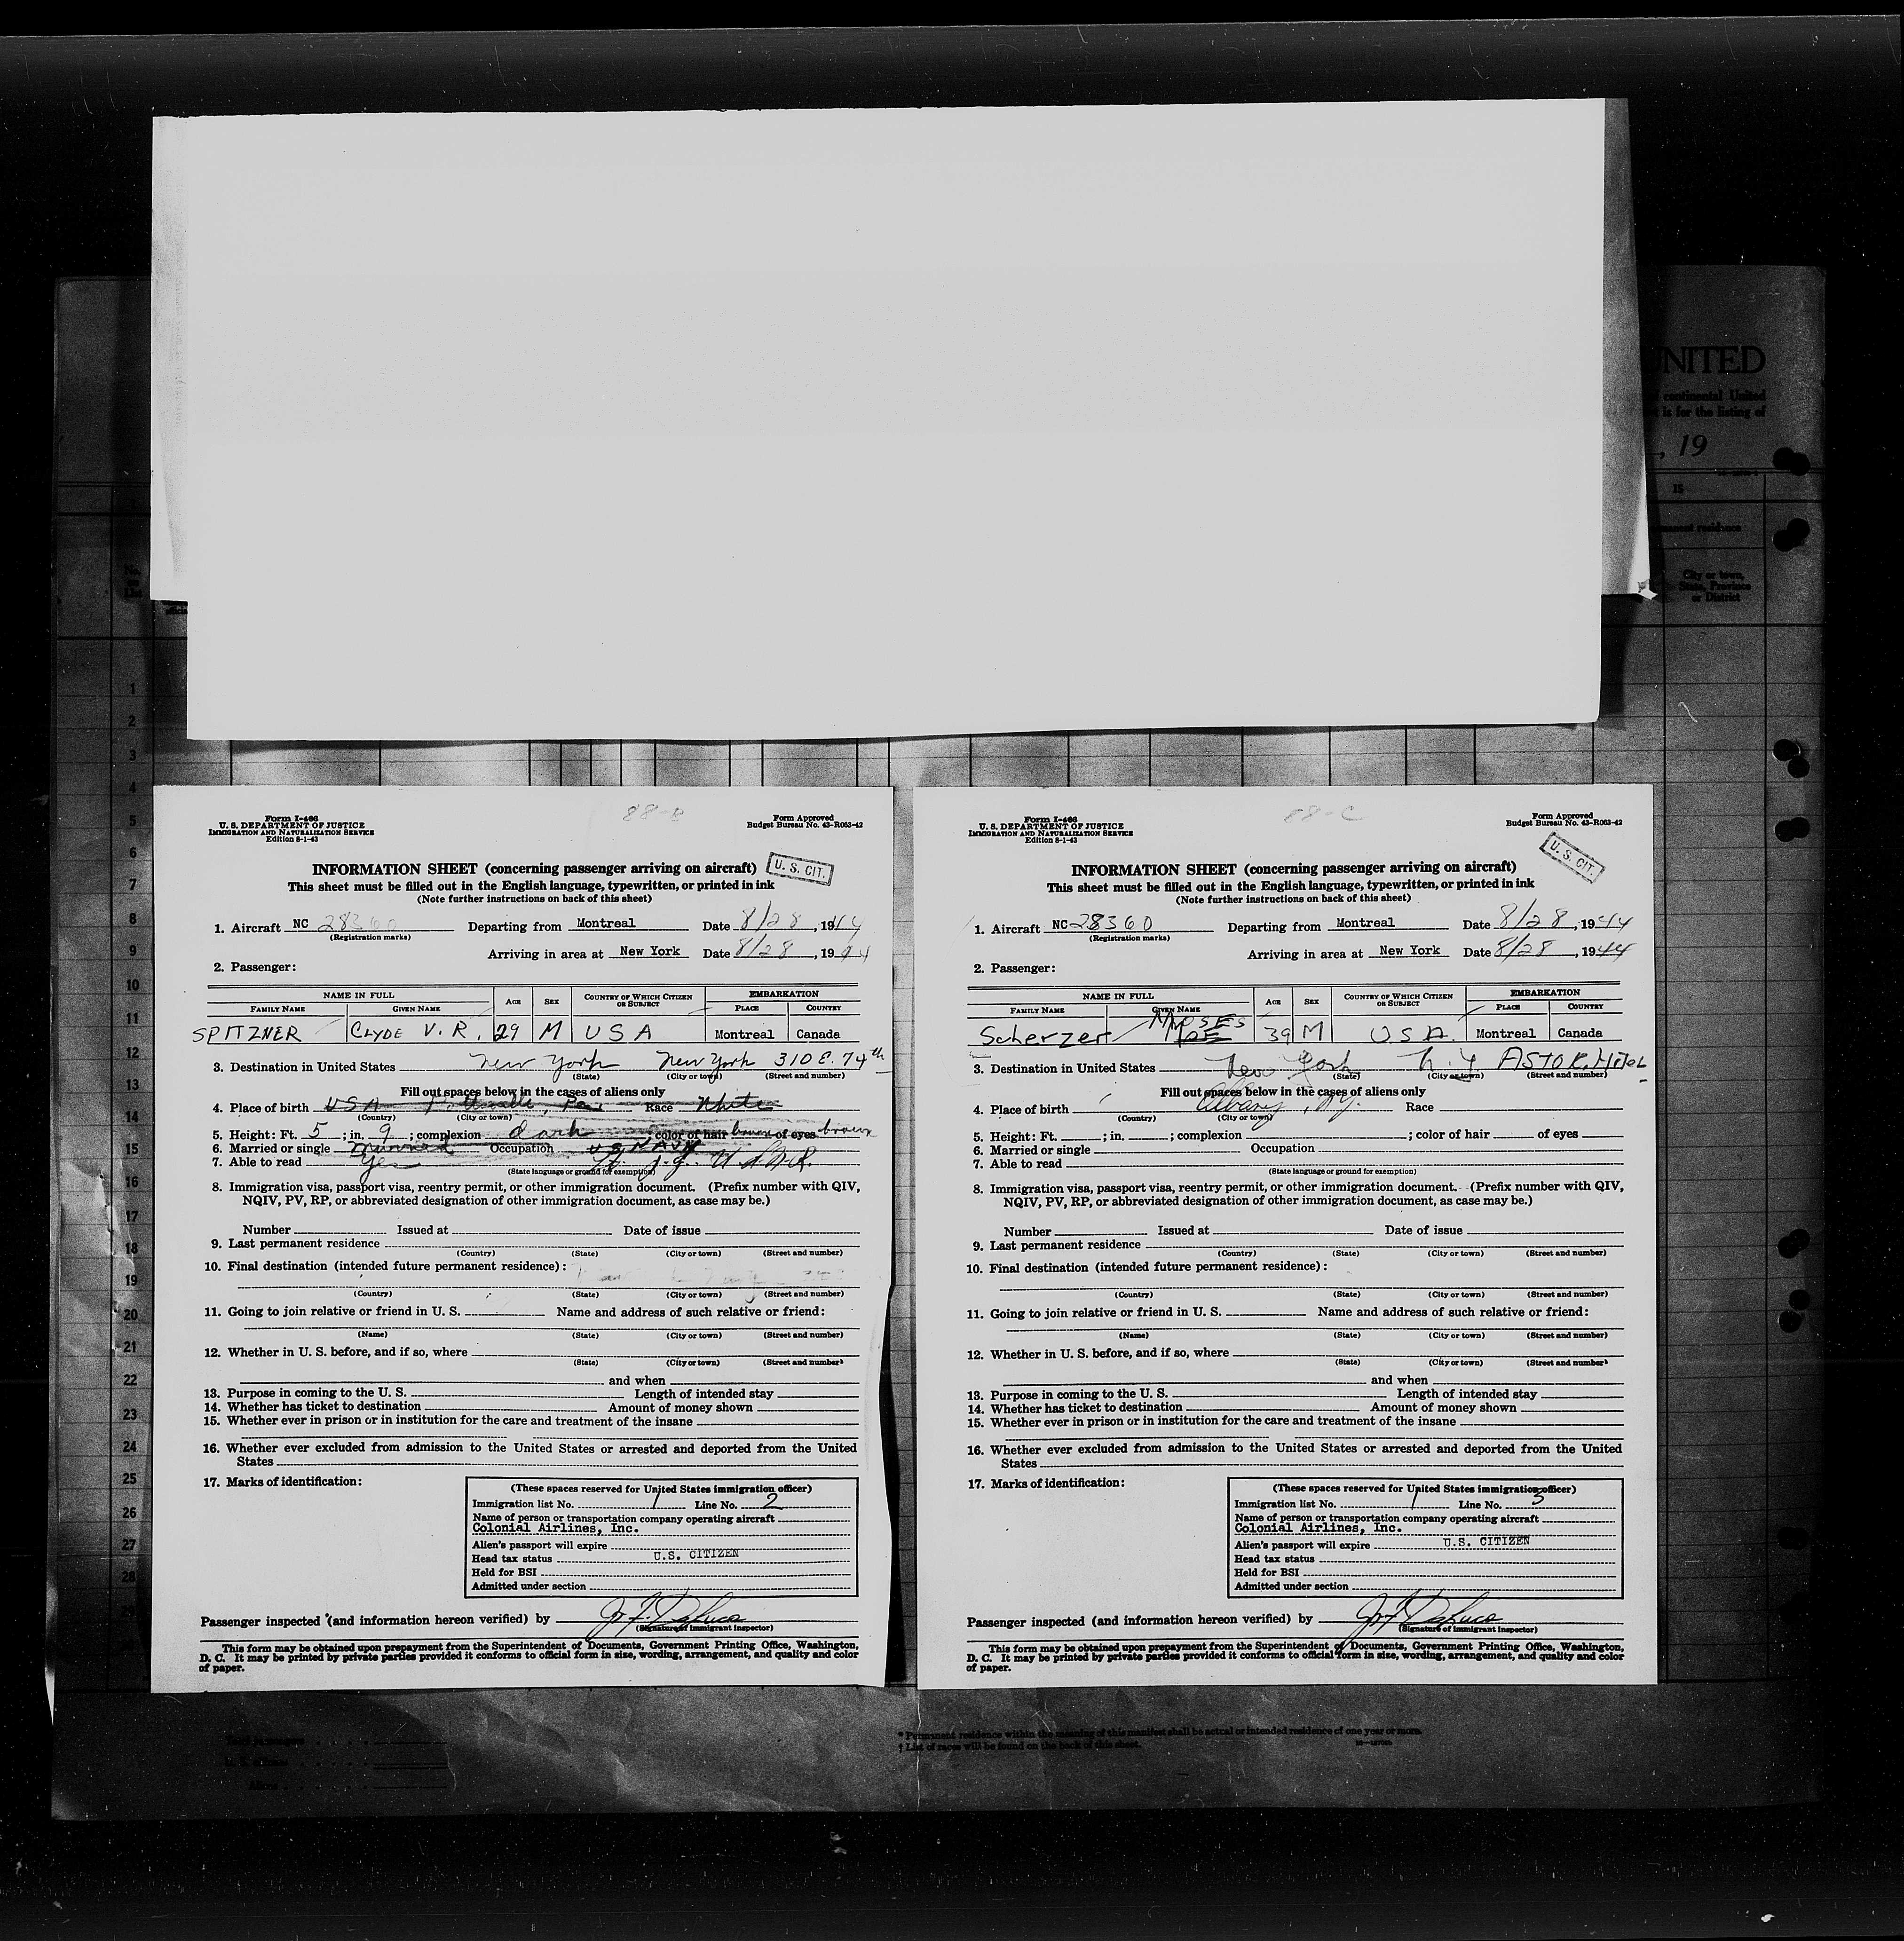 UNITED
continental United
is for the listing of
, 19
IS
permanent residence
No.
on
List
City or town,
State, Province
or District
1
2
3
4
5
6
7
8
9
10
11
12
13
14
15
16
17
18
19
20
21
22
23
24
25
26
27
28
88-B
Form I-466
U. S. DEPARTMENT OF JUSTICE
IMMIGRATION AND NATURALIZATION SERVICE
Edition 8-1-43
Form Approved
Budget Bureau No. 43-R063-42
INFORMATION SHEET (concerning passenger arriving on aircraft)
U. S. CIT.
This sheet must be filled out in the English language, typewritten, or printed in ink
(Note further instructions on back of this sheet)
1. Aircraft NC 28360 Departing from Montreal Date 8/28, 1944
(Registration marks)
Arriving in area at New York Date 8/28, 1944
2. Passenger:
NAME IN FULL AGE SEX COUNTRY OF WHICH CITIZEN OR SUBJECT EMBARKATION
FAMILY NAME GIVEN NAME PLACE COUNTRY
SPITZNER CLYDE V. R. 29 M U S A Montreal Canada
3. Destination in United States New York New York 310 E. 74th
(State) (City or town) (Street and number)
Fill out spaces below in the cases of aliens only
4. Place of birth USA Pottsville, Pa Race White
(Country) (City or town)
5. Height: Ft. 5; in. 9; complexion dark; color of hair brown of eyes brown
6. Married or single married Occupation US NAVY
7. Able to read Yes Lt. j.g. U.S.N.R.
(State language or ground for exemption)
8. Immigration visa, passport visa, reentry permit, or other immigration document. (Prefix number with QIV,
NQIV, PV, RP, or abbreviated designation of other immigration document, as case may be.)
Number Issued at Date of issue
9. Last permanent residence
(Country) (State) (City or town) (Street and number)
10. Final destination (intended future permanent residence):
(Country) (State) (City or town) (Street and number)
11. Going to join relative or friend in U. S. Name and address of such relative or friend:
(Name) (State) (City or town) (Street and number)
12. Whether in U. S. before, and if so, where
(State) (City or town) (Street and number)
and when
13. Purpose in coming to the U. S. Length of intended stay
14. Whether has ticket to destination Amount of money shown
15. Whether ever in prison or in institution for the care and treatment of the insane
16. Whether ever excluded from admission to the United States or arrested and deported from the United
States
17. Marks of identification:
(These spaces reserved for United States immigration officer)
Immigration list No. 1 Line No. 2
Name of person or transportation company operating aircraft
Colonial Airlines, Inc.
Alien's passport will expire
Head tax status U.S. CITIZEN
Held for BSI
Admitted under section
Passenger inspected (and information hereon verified) by
(Signature of immigrant inspector)
This form may be obtained upon prepayment from the Superintendent of Documents, Government Printing Office, Washington,
D. C. It may be printed by private parties provided it conforms to official form in size, wording, arrangement, and quality and color
of paper.
88-C
Form I-466
U. S. DEPARTMENT OF JUSTICE
IMMIGRATION AND NATURALIZATION SERVICE
Edition 8-1-43
Form Approved
Budget Bureau No. 43-R063-42
U. S. CIT.
INFORMATION SHEET (concerning passenger arriving on aircraft)
This sheet must be filled out in the English language, typewritten, or printed in ink
(Note further instructions on back of this sheet)
1. Aircraft NC 28360 Departing from Montreal Date 8/28, 1944
(Registration marks)
Arriving in area at New York Date 8/28, 1944
2. Passenger:
NAME IN FULL AGE SEX COUNTRY OF WHICH CITIZEN OR SUBJECT EMBARKATION
FAMILY NAME GIVEN NAME PLACE COUNTRY
MOSES
Scherzer MOE 39 M U S A. Montreal Canada
3. Destination in United States New York N. Y ASTOR. HOTEL
(State) (City or town) (Street and number)
Fill out spaces below in the cases of aliens only
4. Place of birth Albany, N.Y. Race
(Country) (City or town)
5. Height: Ft. ; in. ; complexion ; color of hair of eyes
6. Married or single Occupation
7. Able to read
(State language or ground for exemption)
8. Immigration visa, passport visa, reentry permit, or other immigration document. (Prefix number with QIV,
NQIV, PV, RP, or abbreviated designation of other immigration document, as case may be.)
Number Issued at Date of issue
9. Last permanent residence
(Country) (State) (City or town) (Street and number)
10. Final destination (intended future permanent residence):
(Country) (State) (City or town) (Street and number)
11. Going to join relative or friend in U. S. Name and address of such relative or friend:
(Name) (State) (City or town) (Street and number)
12. Whether in U. S. before, and if so, where
(State) (City or town) (Street and number)
and when
13. Purpose in coming to the U. S. Length of intended stay
14. Whether has ticket to destination Amount of money shown
15. Whether ever in prison or in institution for the care and treatment of the insane
16. Whether ever excluded from admission to the United States or arrested and deported from the United
States
17. Marks of identification:
(These spaces reserved for United States immigration officer)
Immigration list No. 1 Line No. 3
Name of person or transportation company operating aircraft
Colonial Airlines, Inc.
Alien's passport will expire U.S. CITIZEN
Head tax status
Held for BSI
Admitted under section
Passenger inspected (and information hereon verified) by
(Signature of immigrant inspector)
This form may be obtained upon prepayment from the Superintendent of Documents, Government Printing Office, Washington,
D. C. It may be printed by private parties provided it conforms to official form in size, wording, arrangement, and quality and color
of paper.
* Permanent residence within the meaning of this manifest shall be actual or intended residence of one year or more.
† List of races will be found on the back of this sheet.
Aliens